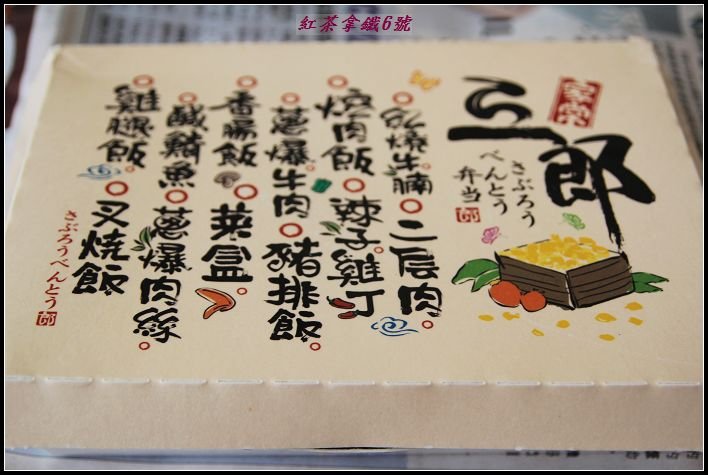 紅茶拿鐵6號
家常
三郎
さぶろう
べんとう
弁当
紅燒牛腩
二层肉
燒肉飯
辣子雞丁
蔥爆牛肉
豬排飯
香腸飯
菜盒
鹹鯖魚
蔥爆肉絲
雞腿飯
叉燒飯
さぶろうべんとう